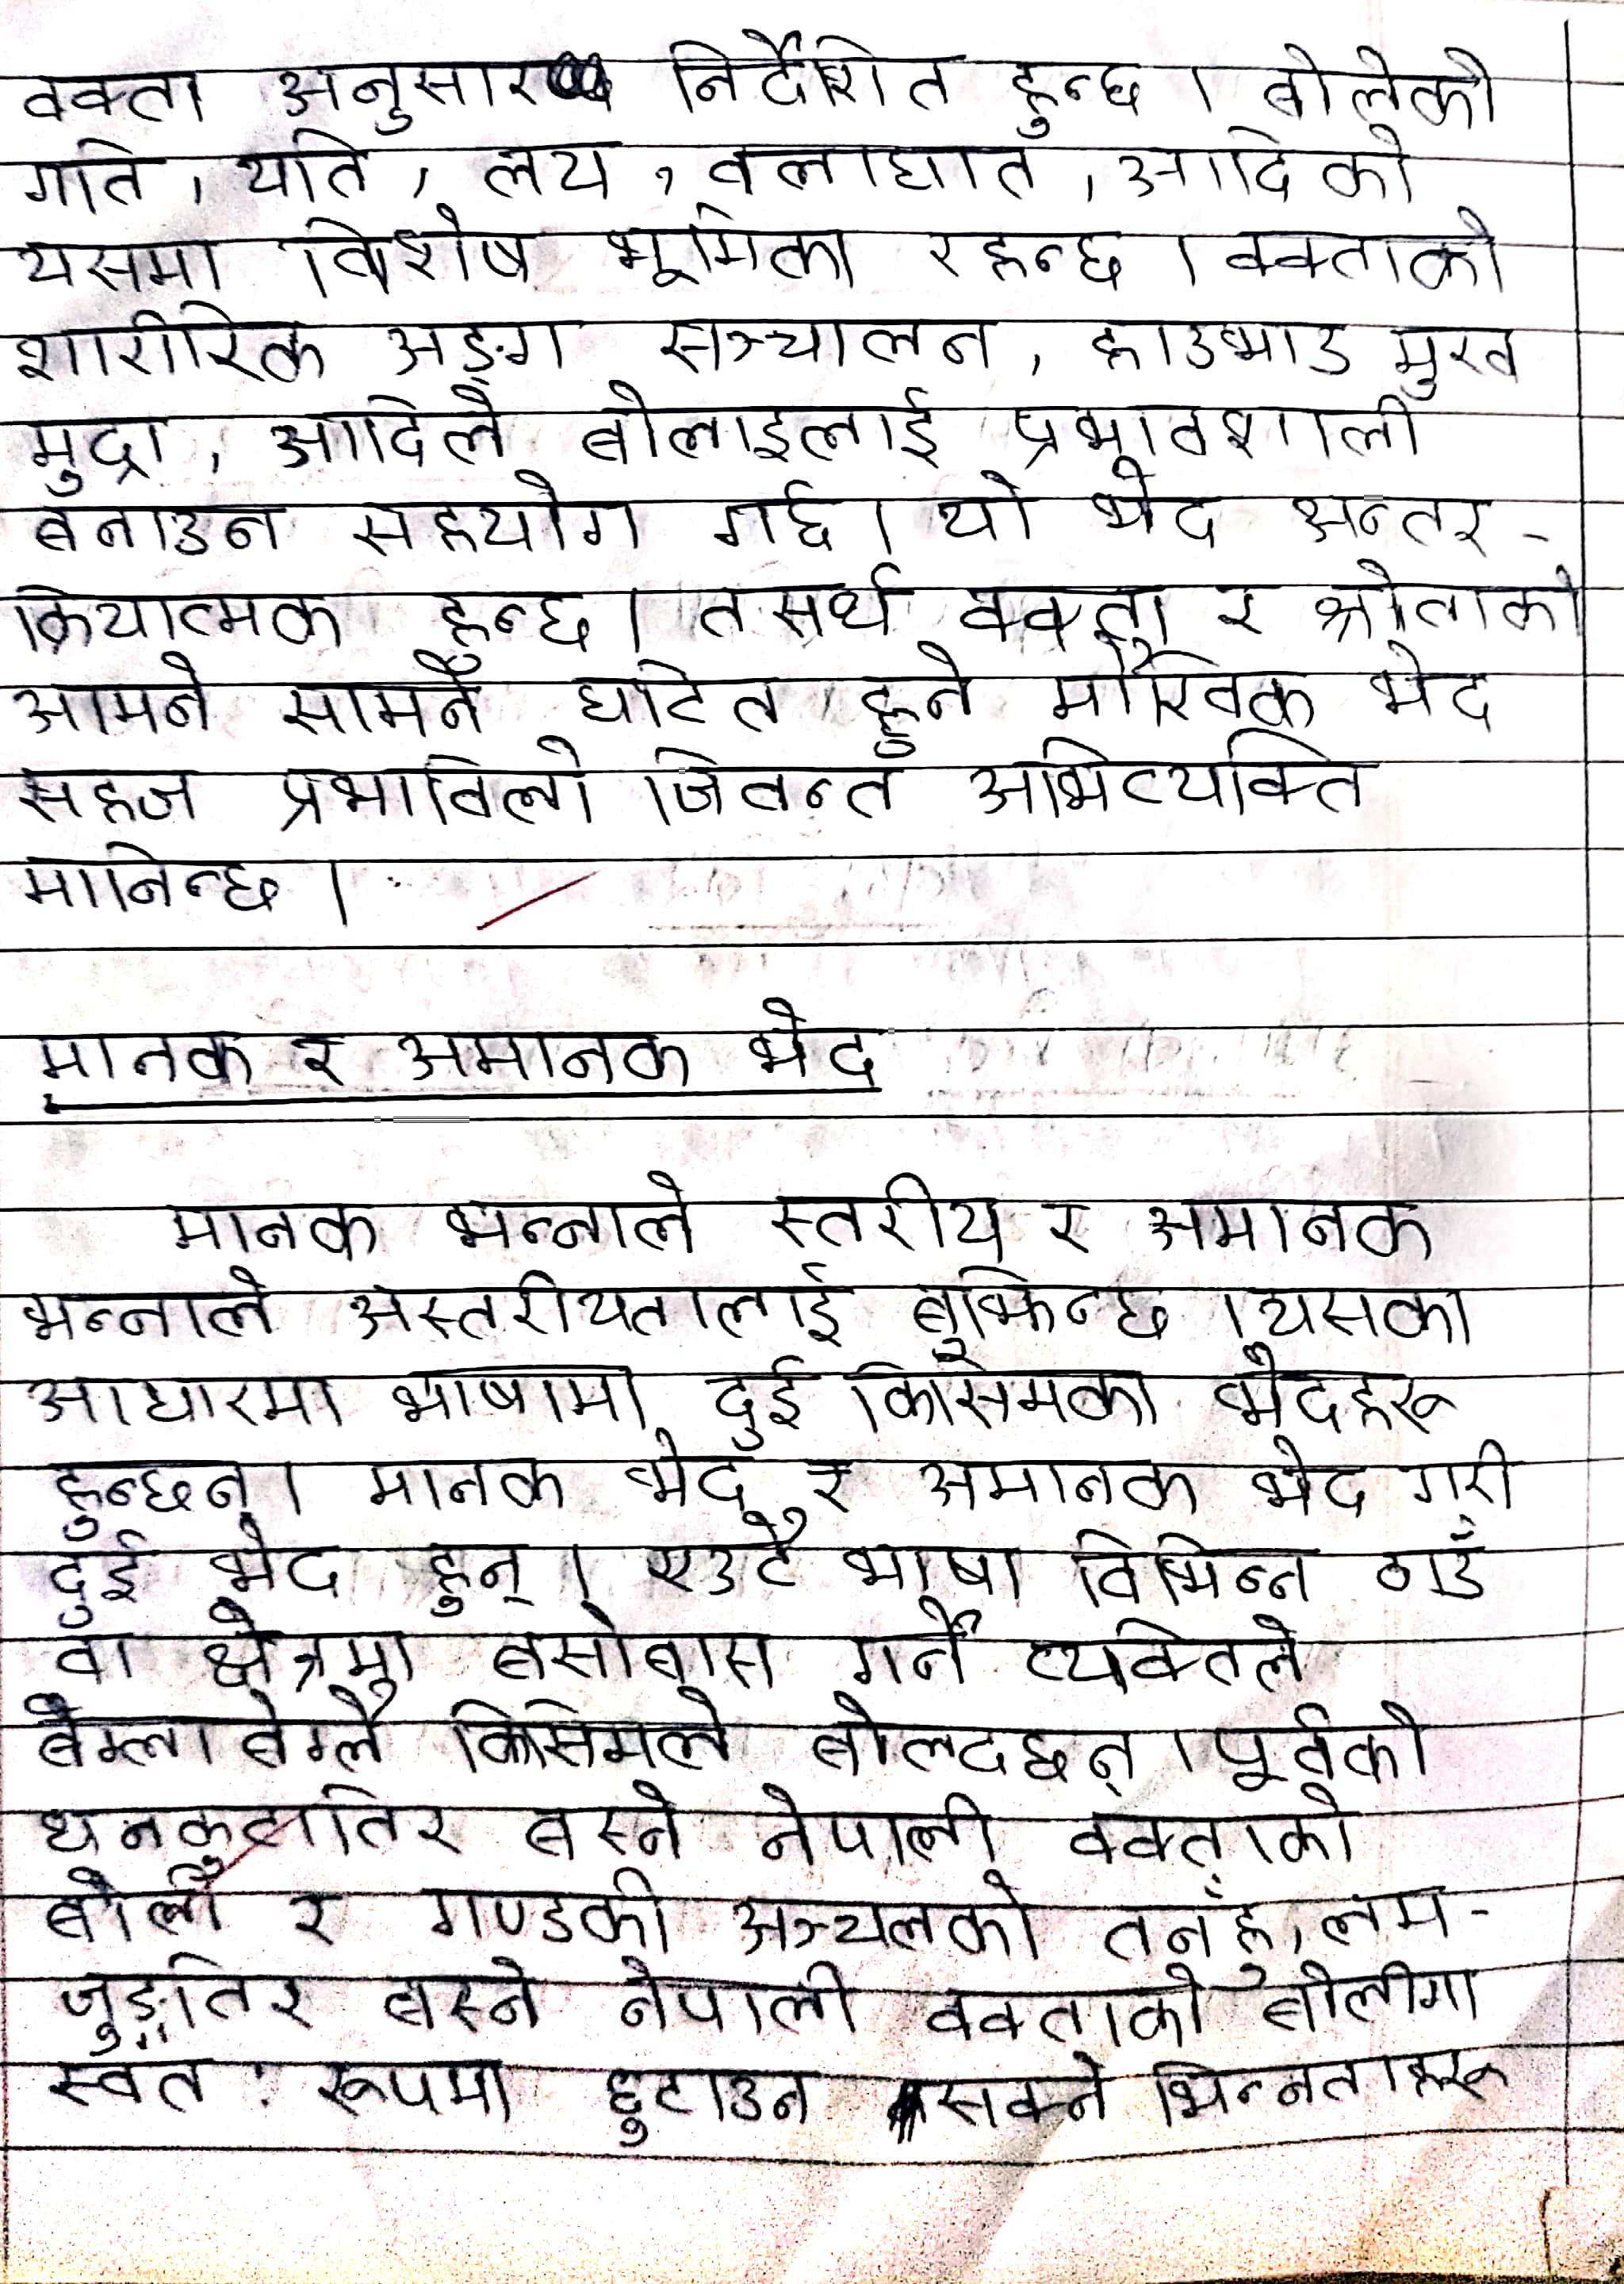 वक्ता अनुसार निर्देशित हुन्छ । बोलेको
गति, यति, लय, वलाघात, आदिको
यसमा विशेष भूमिका रहन्छ । वक्ताको
शारीरिक अङ्ग सञ्चालन, हाउभाउ मुख
मुद्रा, आदिले बोलाइलाई प्रभावशाली
बनाउन सहयोग गर्छ । यो भेद अन्तर-
क्रियात्मक हुन्छ । तसर्थ वक्ता र श्रोताको
आमने सामने घटित हुने मौखिक भेद
सहज प्रभाविलो जिवन्त अभिव्यक्ति
मानिन्छ ।
मानक र अमानक भेद
मानक भन्नाले स्तरीय र अमानक
भन्नाले अस्तरीयतालाई बुझिन्छ । यसका
आधारमा भाषामा दुई किसिमका भेदहरू
हुन्छन् । मानक भेद र अमानक भेद गरी
दुई भेद हुन् । एउटै भाषा विभिन्न ठाउँ
वा क्षेत्रमा बसोबास गर्ने व्यक्तिले
बेग्ला बेग्लै किसिमले बोल्दछन् । पूर्वको
धनकुटातिर बस्ने नेपाली वक्ताको
बोली र गण्डकी अञ्चलको तनहुँ, लम-
जुङतिर बस्ने नेपाली वक्ताको बोलीगा
स्वत: रूपमा छुटाउन सक्ने भिन्नताहरू